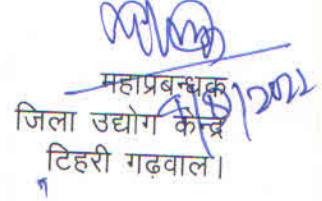 महाप्रबन्धक
जिला उद्योग केन्द्र
टिहरी गढ़वाल।